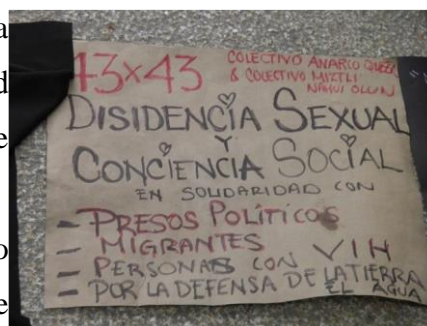 43x43
COLECTIVO ANARCO QUEER
& COLECTIVO MIZTLI
NAHUI OLLIN
DISIDENCIA SEXUAL
Y
CONCIENCIA SOCIAL
EN SOLIDARIDAD CON
- PRESOS POLÍTICOS
- MIGRANTES
- PERSONAS CON VIH
- POR LA DEFENSA DE LA TIERRA
EL AGUA
a
d
e
o
e